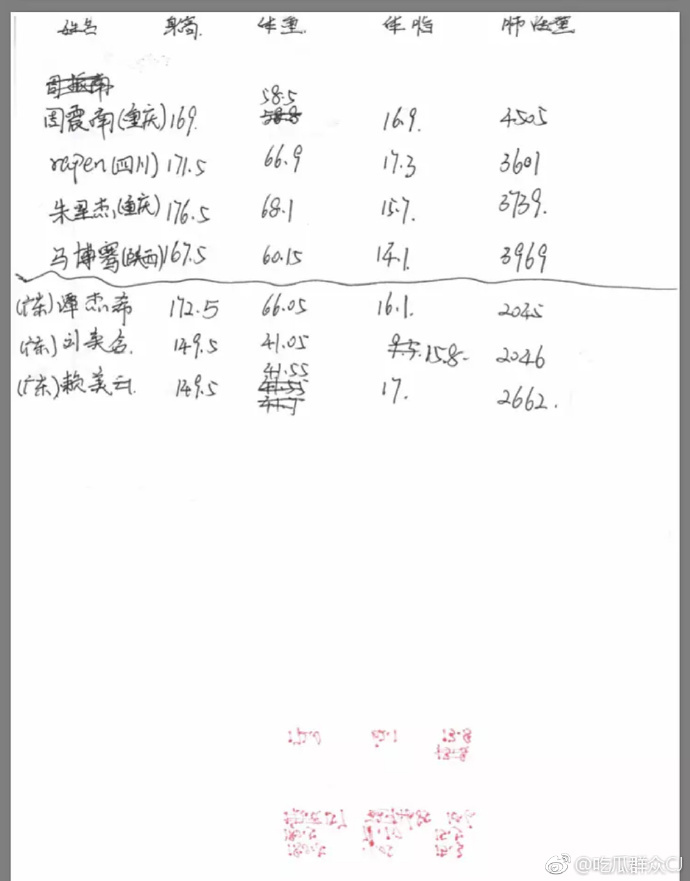 姓名 身高. 体重. 体脂 肺活量
58.5
周震南(重庆)169. 16.9. 4505
rapen(四川)171.5 66.9 17.3 3601
朱星杰(重庆)176.5 68.1 15.7. 3739.
马博骞(陕西)167.5 60.15 14.1. 3969
(广东)谭杰希 172.5 66.05 16.1. 2045
(广东)刘美含. 149.5 41.05 15.8- 2046
41.55
(广东)赖美云 149.5 17. 2662.
@吃瓜群众CJ